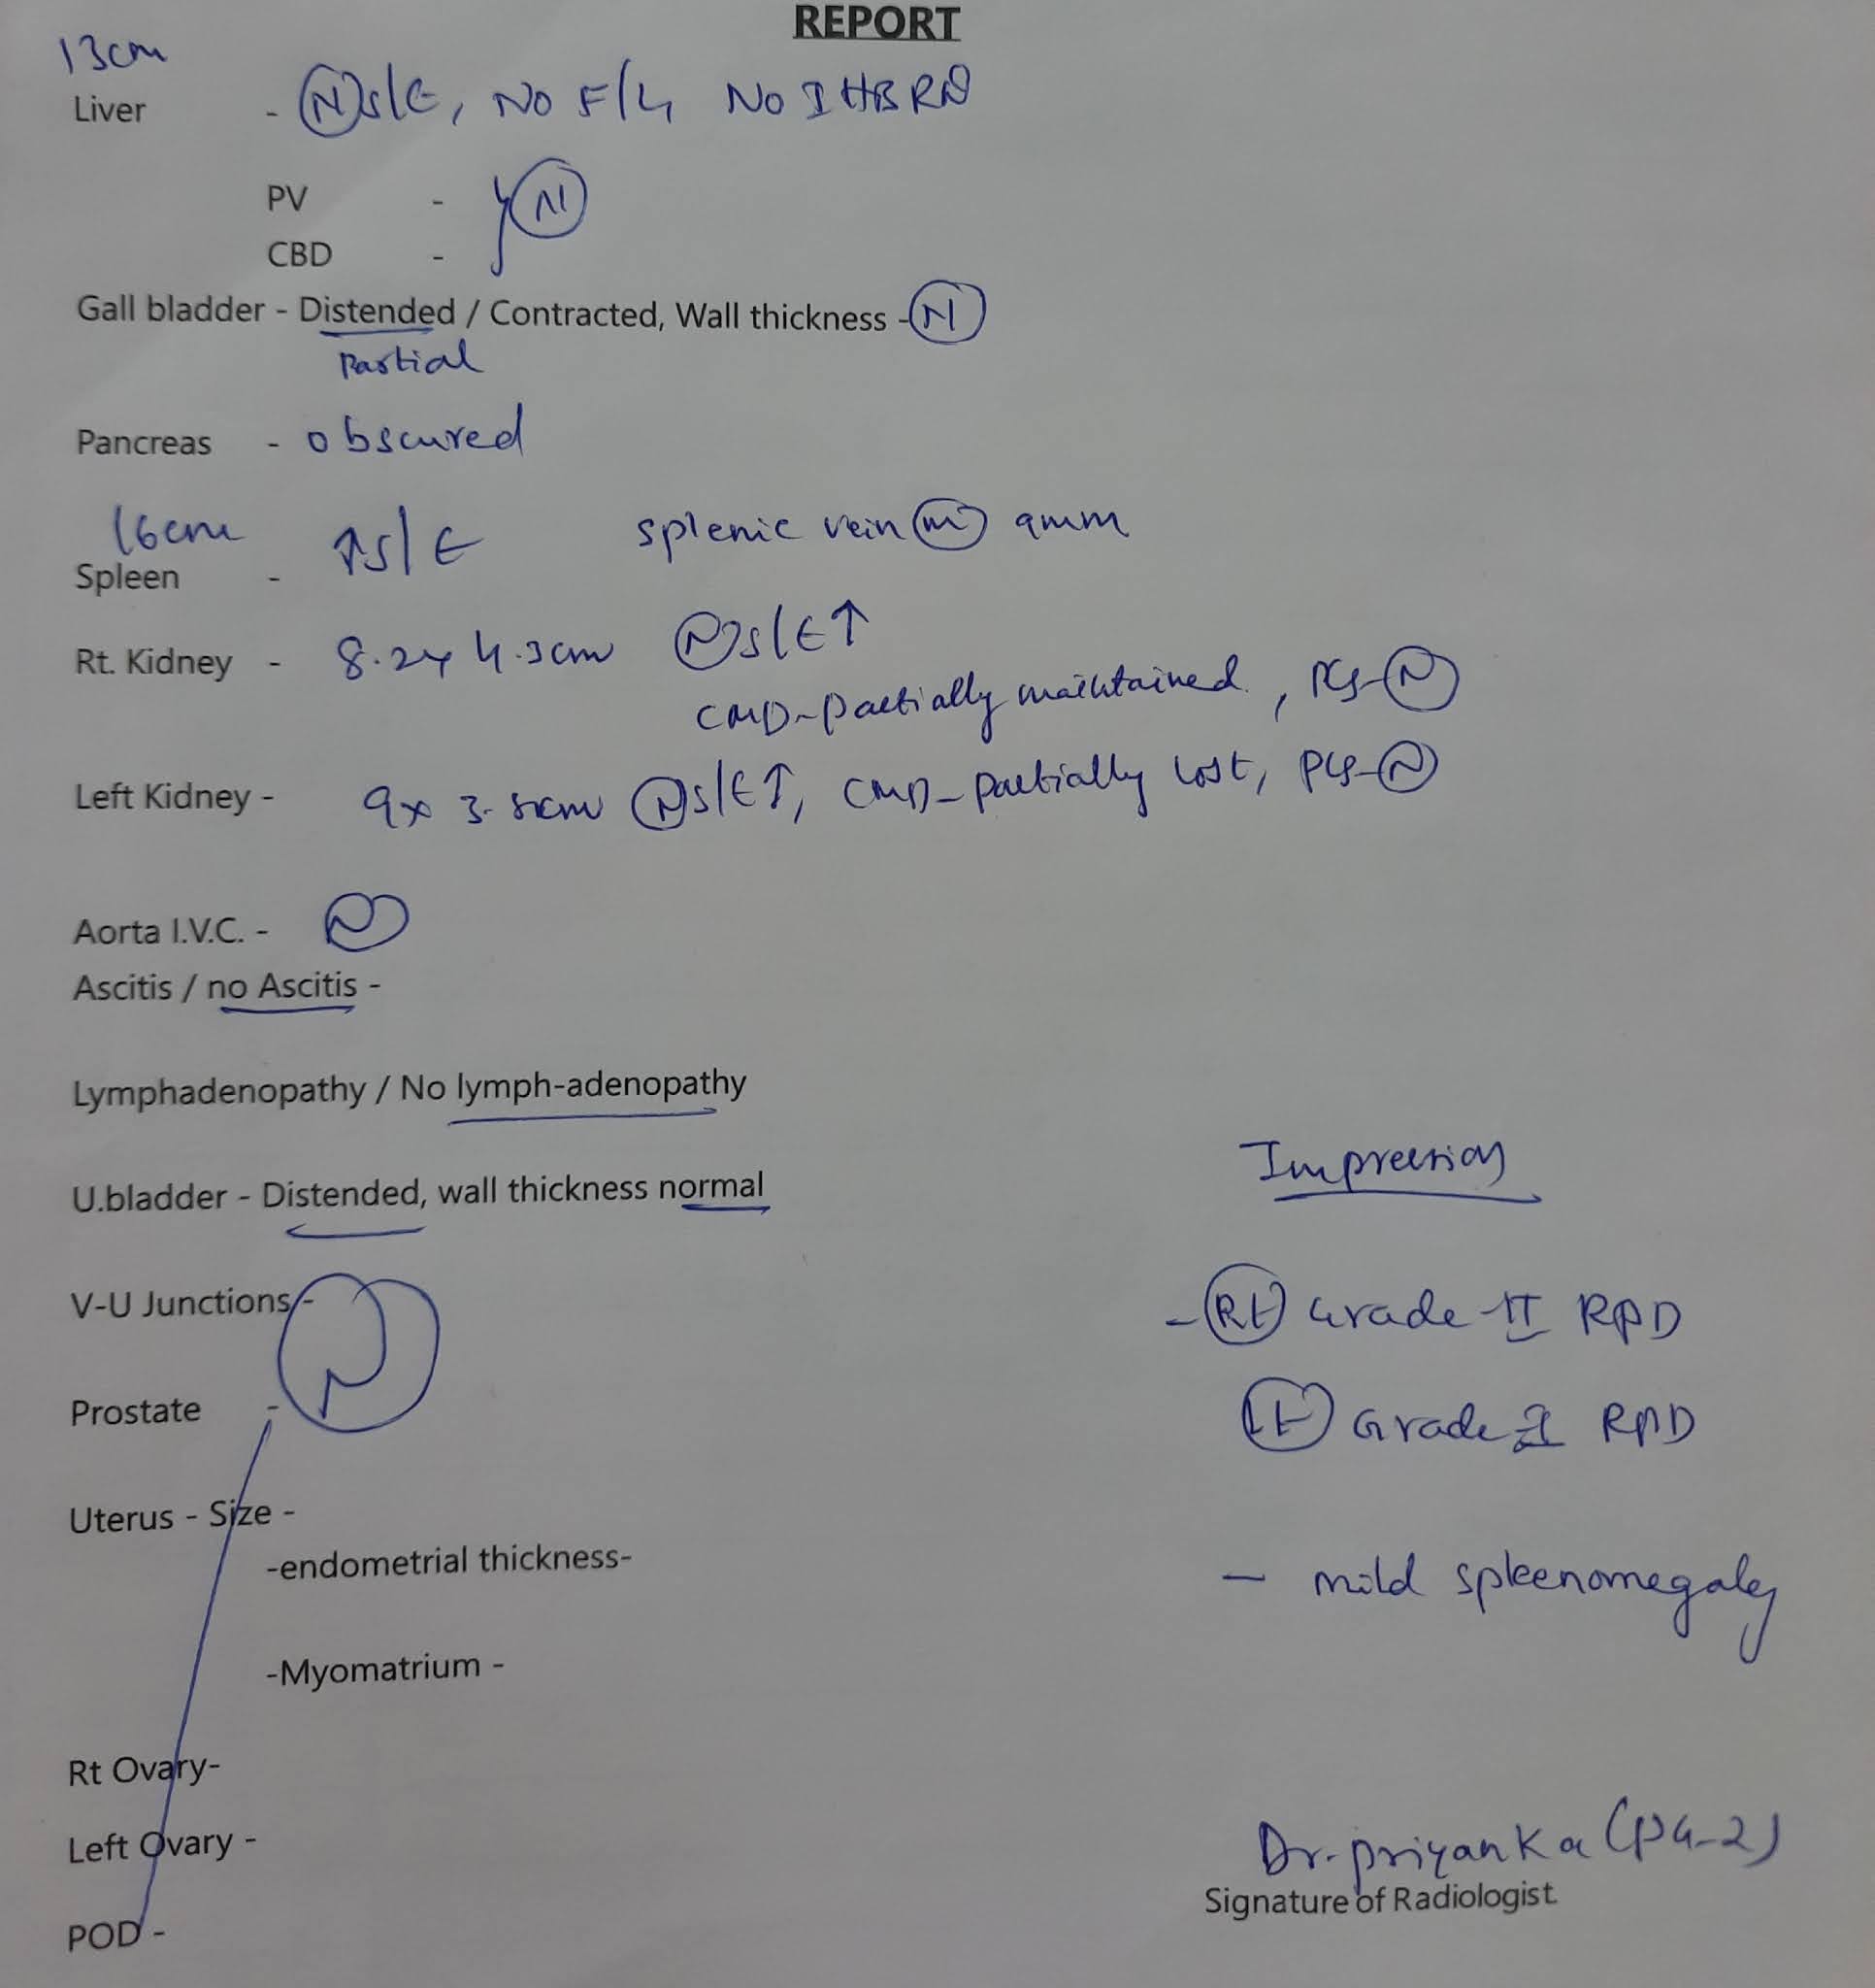 REPORT
13cm
Liver - (N) S/E, NO F/L, NO IHBRD
PV -
CBD - } (N)
Gall bladder - Distended / Contracted, Wall thickness - (N)
Partial
Pancreas - obscured
16cm
Spleen - ↑S/E splenic vein (m) 9mm
Rt. Kidney - 8.2x4.3cm (N) S/E↑
CMD-partially maintained, PCS-(N)
Left Kidney - 9x cm (N) S/E↑, CMD-partially lost, PCS-(N)
Aorta I.V.C. - (N)
Ascitis / no Ascitis -
Lymphadenopathy / No lymph-adenopathy
Impression
U.bladder - Distended, wall thickness normal
V-U Junctions - (N)
- (Rt) Grade II RPD
Prostate -
(Lt) Grade RPD
Uterus - Size -
-endometrial thickness-
- mild spleenomegaly
-Myomatrium -
Rt Ovary-
Left Ovary -
Dr. Priyanka (PG-2)
Signature of Radiologist
POD -